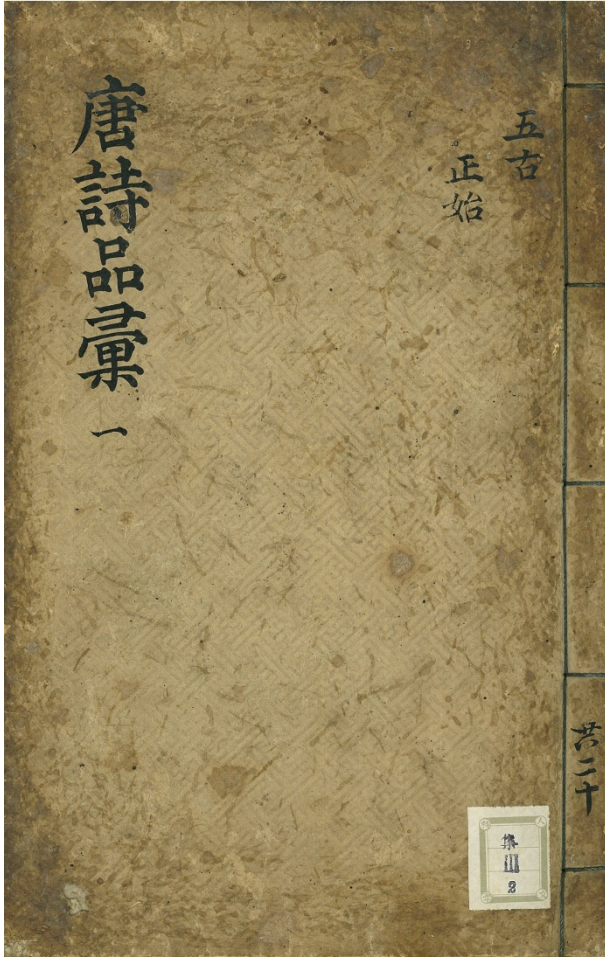 五古
正始
唐詩品彙 一
共二十
集
III
2